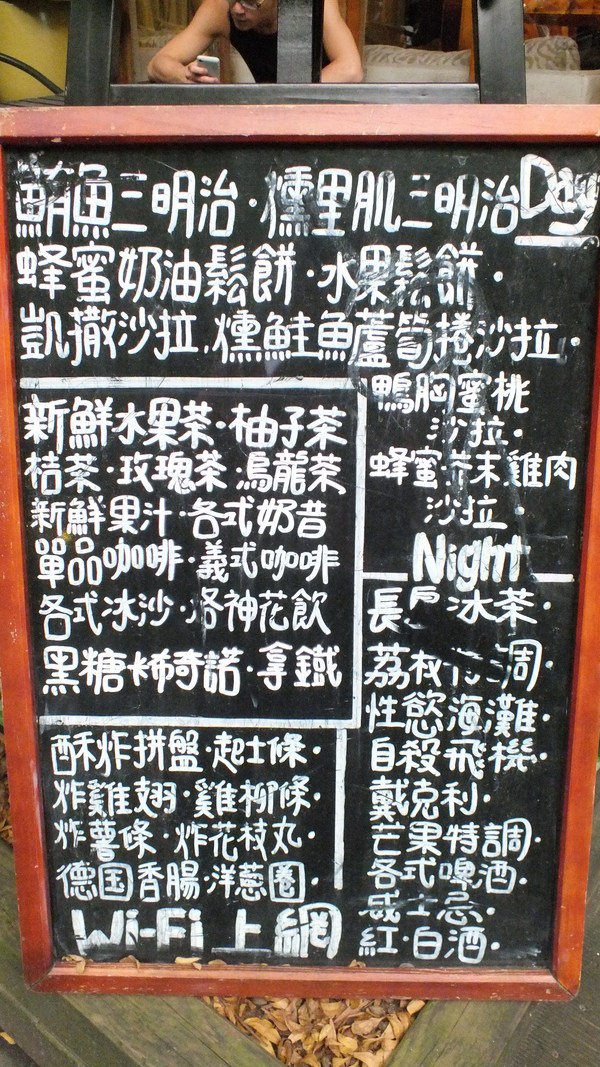 鮪魚三明治·燻里肌三明治 Day
蜂蜜奶油鬆餅·水果鬆餅·
凱撒沙拉·燻鮭魚蘆筍捲沙拉·
鴨胸蜜桃
沙拉·
蜂蜜芥末雞肉
沙拉·
新鮮水果茶·柚子茶
桔茶·玫瑰茶·烏龍茶
新鮮果汁·各式奶昔
單品咖啡·義式咖啡
各式冰沙·洛神花飲
黑糖卡布奇諾·拿鐵
酥炸拼盤·起士條·
炸雞翅·雞柳條·
炸薯條·炸花枝丸·
德国香腸·洋蔥圈·
Wi-Fi 上網
Night
長島冰茶·
荔枝 調·
性慾海灘·
自殺飛機·
戴克利·
芒果特調·
各式啤酒·
威士忌·
紅·白酒·